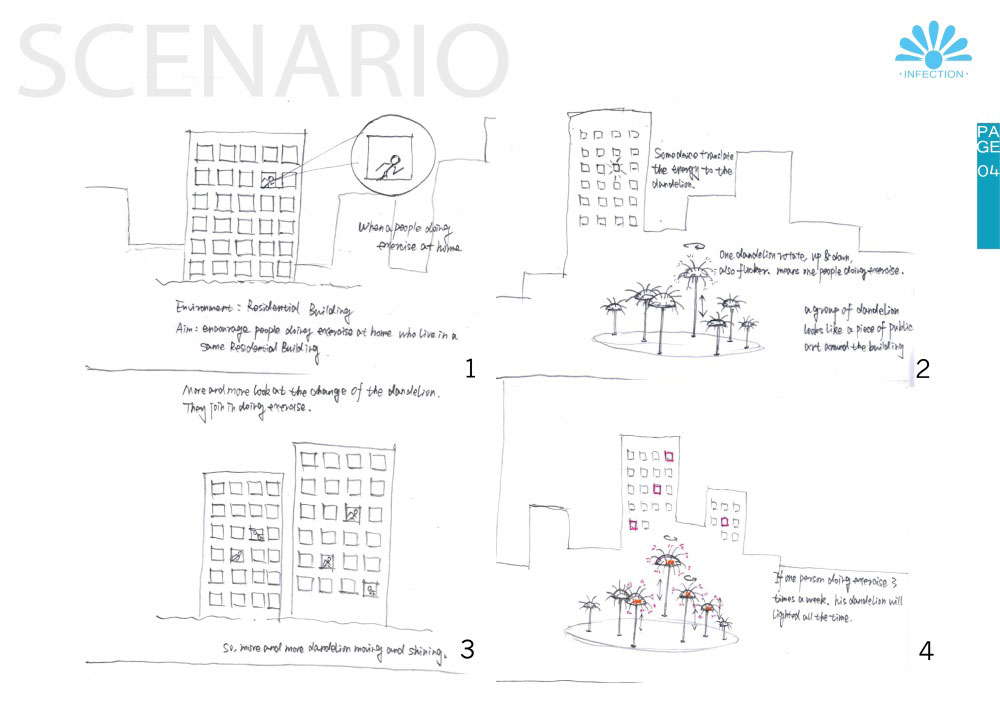 SCENARIO
·INFECTION·
PA
GE
04
When a people doing
exercise at home
Environment : Residential Building
Aim : encourage people doing exercise at home who live in a
same Residential Building
1
Somewhere translate
the energy to the
dandelion.
One dandelion rotate, up & down,
also flicker. means one people doing exercise.
a group of dandelion
looks like a piece of public
art around the building
2
More and more look at the change of the dandelion.
They join in doing exercise.
So, more and more dandelion moving and shining.
3
If one person doing exercise 3
times a week. his dandelion will
lighted all the time.
4